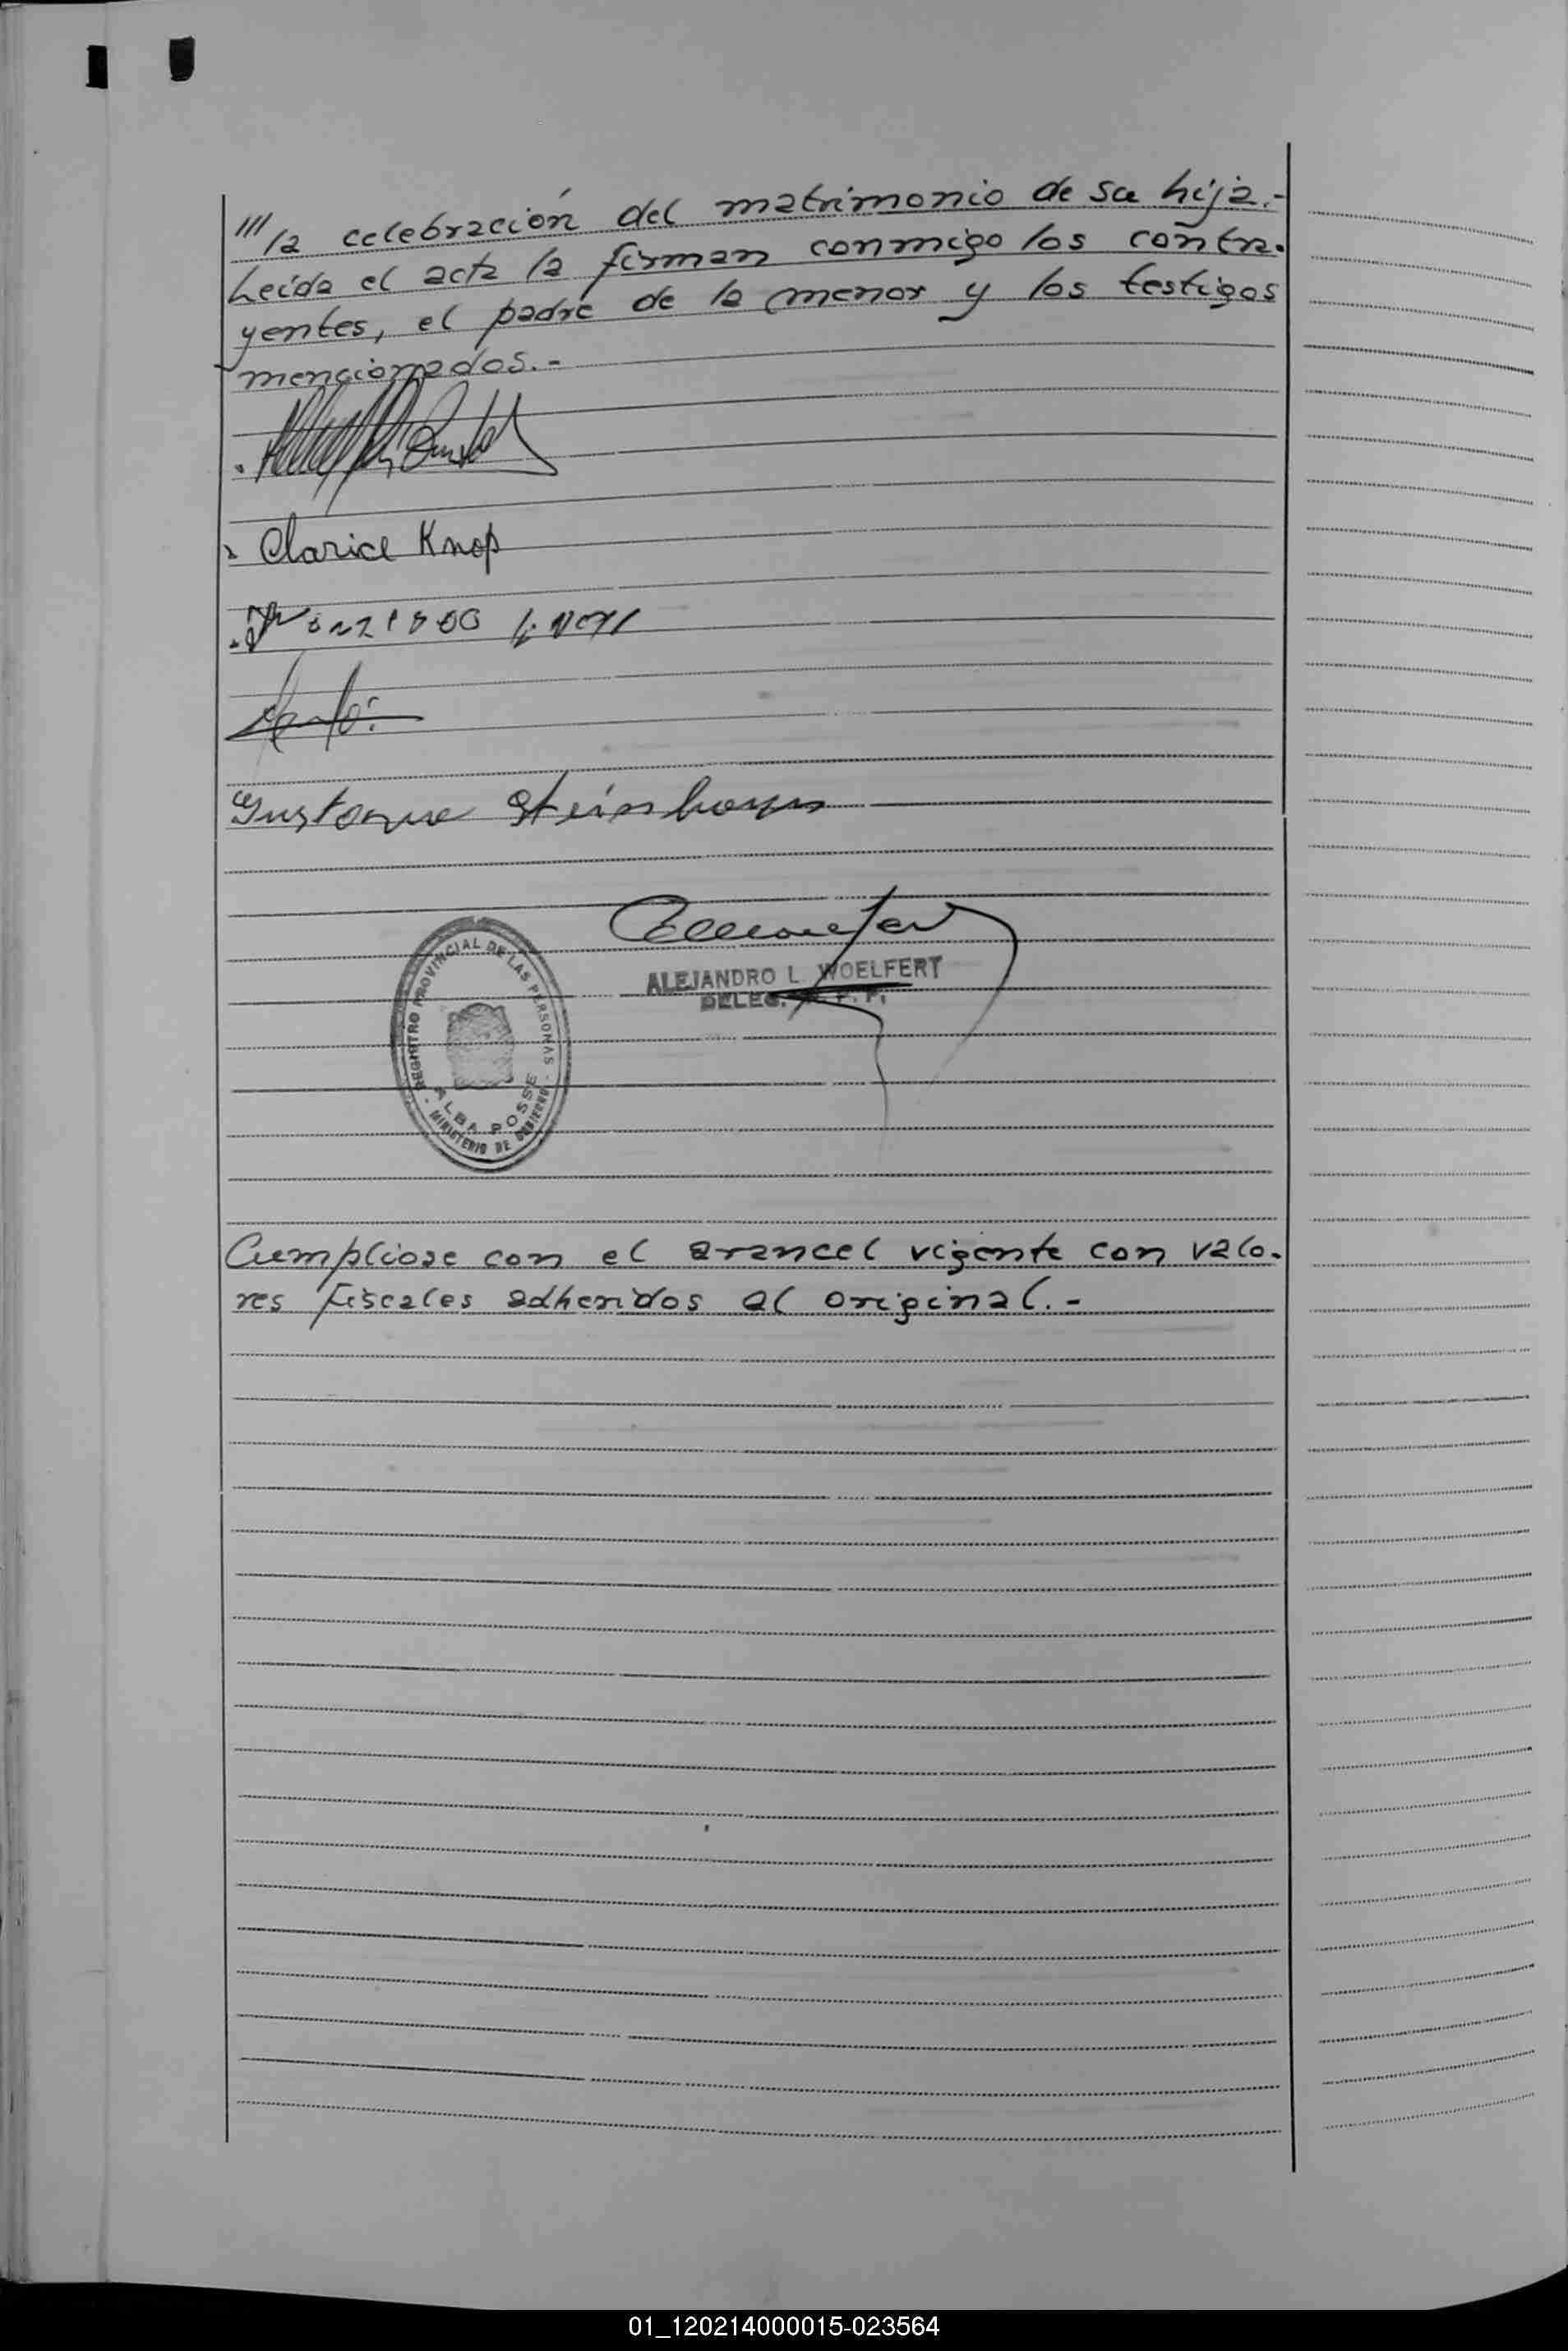 /// la celebración del matrimonio de su hija.-
Leída el acta la firman conmigo los contra-
yentes, el padre de la menor y los testigos
mencionados.-
Clarice Knop
ALEJANDRO L. WOELFERT
DELEG. R. P. P.
REGISTRO PROVINCIAL DE LAS PERSONAS
ALBA POSSE
- MINISTERIO DE GOBIERNO -
Cumpliose con el arancel vigente con valo-
res fiscales adheridos al original.-
01_120214000015-023564